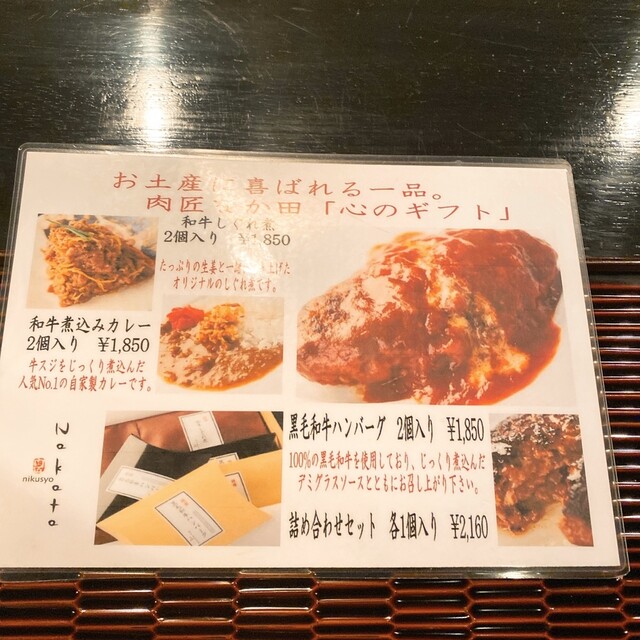 お土産に喜ばれる一品。
肉匠なか田「心のギフト」
和牛しぐれ煮
2個入り ¥1,850
たっぷりの生姜と一緒に 上げた
オリジナルのしぐれ煮です。
和牛煮込みカレー
2個入り ¥1,850
牛スジをじっくり煮込んだ
人気No.1の自家製カレーです。
黒毛和牛ハンバーグ 2個入り ¥1,850
100%の黒毛和牛を使用しており、じっくり煮込んだ
デミグラスソースとともにお召し上がり下さい。
詰め合わせセット 各1個入り ¥2,160
Nakata
nikusyo